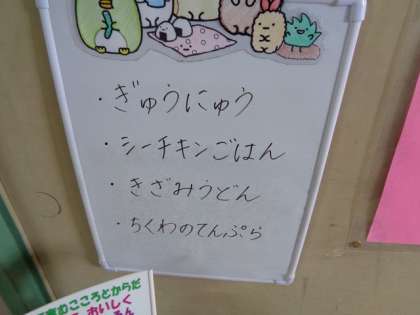 ・ぎゅうにゅう
・シーチキンごはん
・きざみうどん
・ちくわのてんぷら
こころとからだ
おいしく